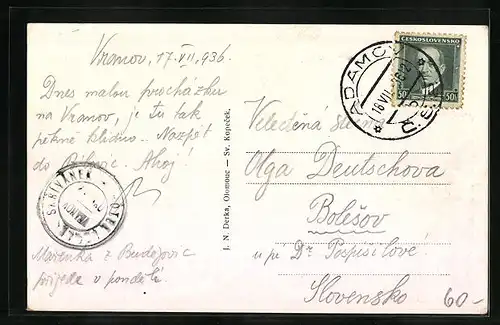 Vranov, 17.VII.936.
Dnes malou procházku
na Vranov, je tu tak
pěkně klidno. Nazpět
do Bílovic. Ahoj!
Mařenka z Budějovic
přijede v pondělí.
SKŘIVÁNEK
J. N. Derka, Olomouc — Sv. Kopeček.
ČESKOSLOVENSKO
50 50
ADAMOV
Velectěná slečna
Olga Deutschova
Bolešov
u p. Dr Pospíšilové
Slovensko
60-